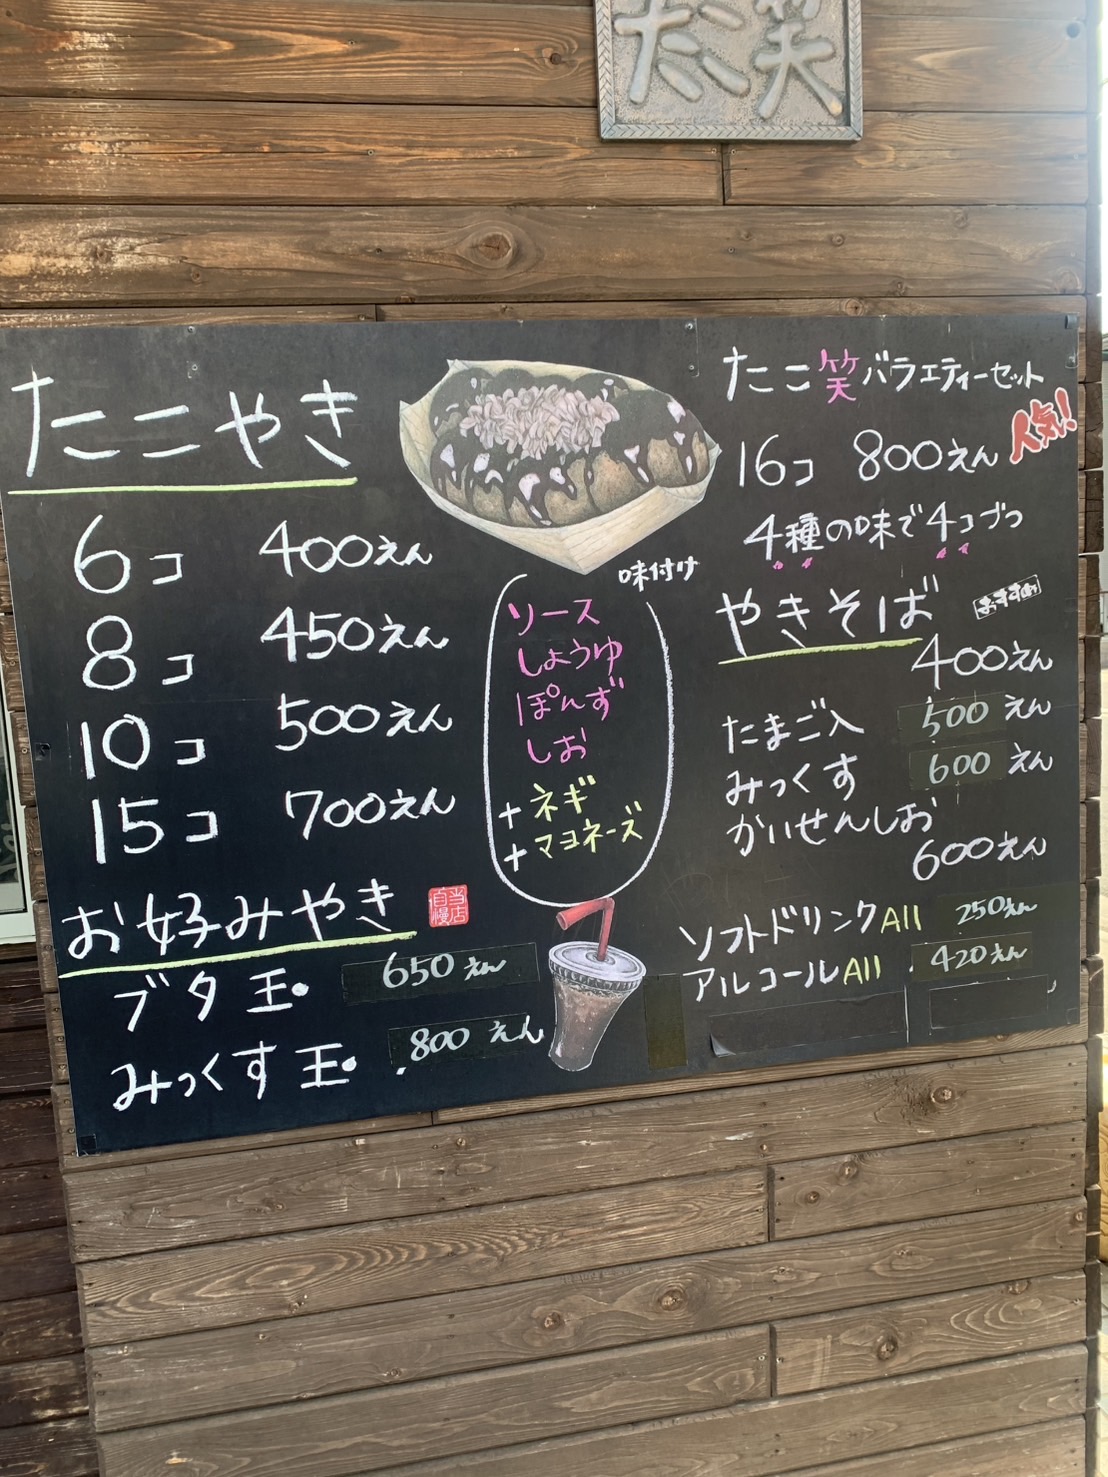 たこ笑
たこやき
6コ 400えん
8コ 450えん
10コ 500えん
15コ 700えん
お好みやき
当店自慢
ブタ玉 650えん
みっくす玉 800えん
味付け
ソース
しょうゆ
ぽんず
しお
+ネギ
+マヨネーズ
たこ笑バラエティーセット
人気!
16コ 800えん
4種の味で4コづつ
やきそば
おすすめ
400えん
たまご入 500えん
みっくす 600えん
かいせんしお
600えん
ソフトドリンクAll 250えん
アルコールAll 420えん